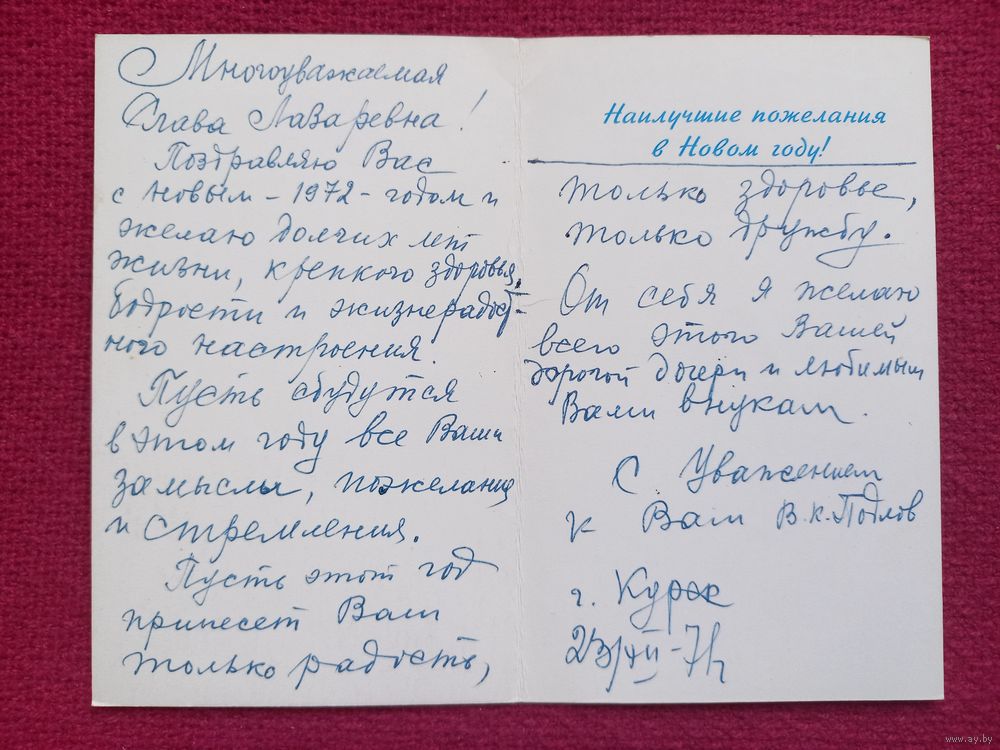 Многоуважаемая
Слава Лазаревна!
Поздравляю Вас
с новым - 1972 - годом и
желаю долгих лет
жизни, крепкого здоровья,
бодрости и жизнерадост-
ного настроения.
Пусть сбудутся
в этом году все Ваши
замыслы, пожелания
и стремления.
Пусть этот год
принесет Вам
только радость,
Наилучшие пожелания
в Новом году!
только здоровье,
только дружбу.
От себя я желаю
всего этого Вашей
дорогой дочери и любимым
Вами внукам.
С Уважением
к Вам В.К.
г. Курск
23/XII-71г
www.ay.by